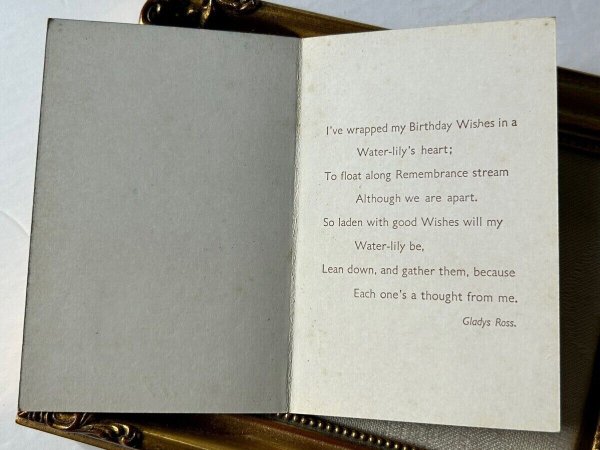 I've wrapped my Birthday Wishes in a
Water-lily's heart;
To float along Remembrance stream
Although we are apart.
So laden with good Wishes will my
Water-lily be,
Lean down, and gather them, because
Each one's a thought from me.
Gladys Ross.